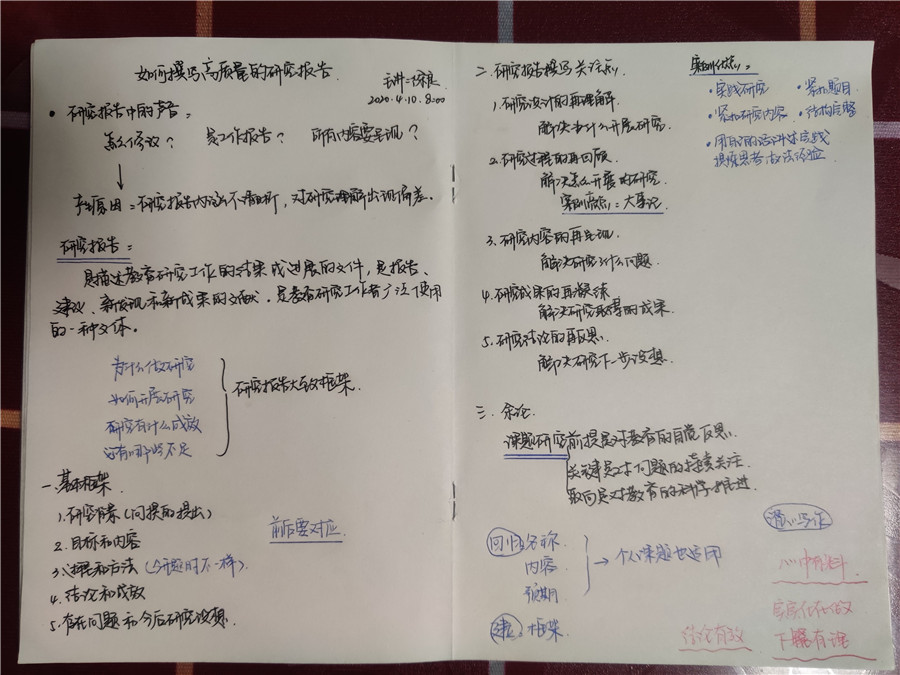 如何撰写高质量的研究报告
主讲:
2020.4.10.8:00
• 研究报告中的声音:
怎么修改? 是工作报告? 所有内容要呈现?
↓
产生原因:研究报告内容不清晰,对研究理解出现偏差。
研究报告:
是描述教育研究工作的结果或进展的文件,是报告、
建议、新发现和新成果的文献。是教育研究工作者广泛使用
的一种文体。
为什么做研究
如何开展研究
研究有什么成效
还有哪些不足
研究报告大致框架
一.基本框架
1.研究背景(问题的提出)
2.目标和内容
3.过程和方法(开题时不一样)
4.结论和成效
5.存在问题和今后研究设想
前后要对应
二.研究报告撰写关注点
1.研究设计的再理解
解决为什么开展研究
2.研究过程的再回顾
解决怎么开展的研究
案例做点:大事记
3.研究内容的再呈现
解决研究了什么问题
4.研究成果的再凝练
解决研究取得的成果
5.研究结论的再反思
解决研究下一步设想
• 实践研究
• 紧扣题目
• 紧扣研究内容
• 结构完整
• 用自己的话讲述实践
提炼思考做法经验
三.余论
课题研究前提是对教育的自觉反思
关键是对问题的持续关注
取向是对教育的科学推进
回归 名称
内容
预期
→ 个人课题也适用
建 框架
心中有料
结论有效
实实在在做
下笔有话